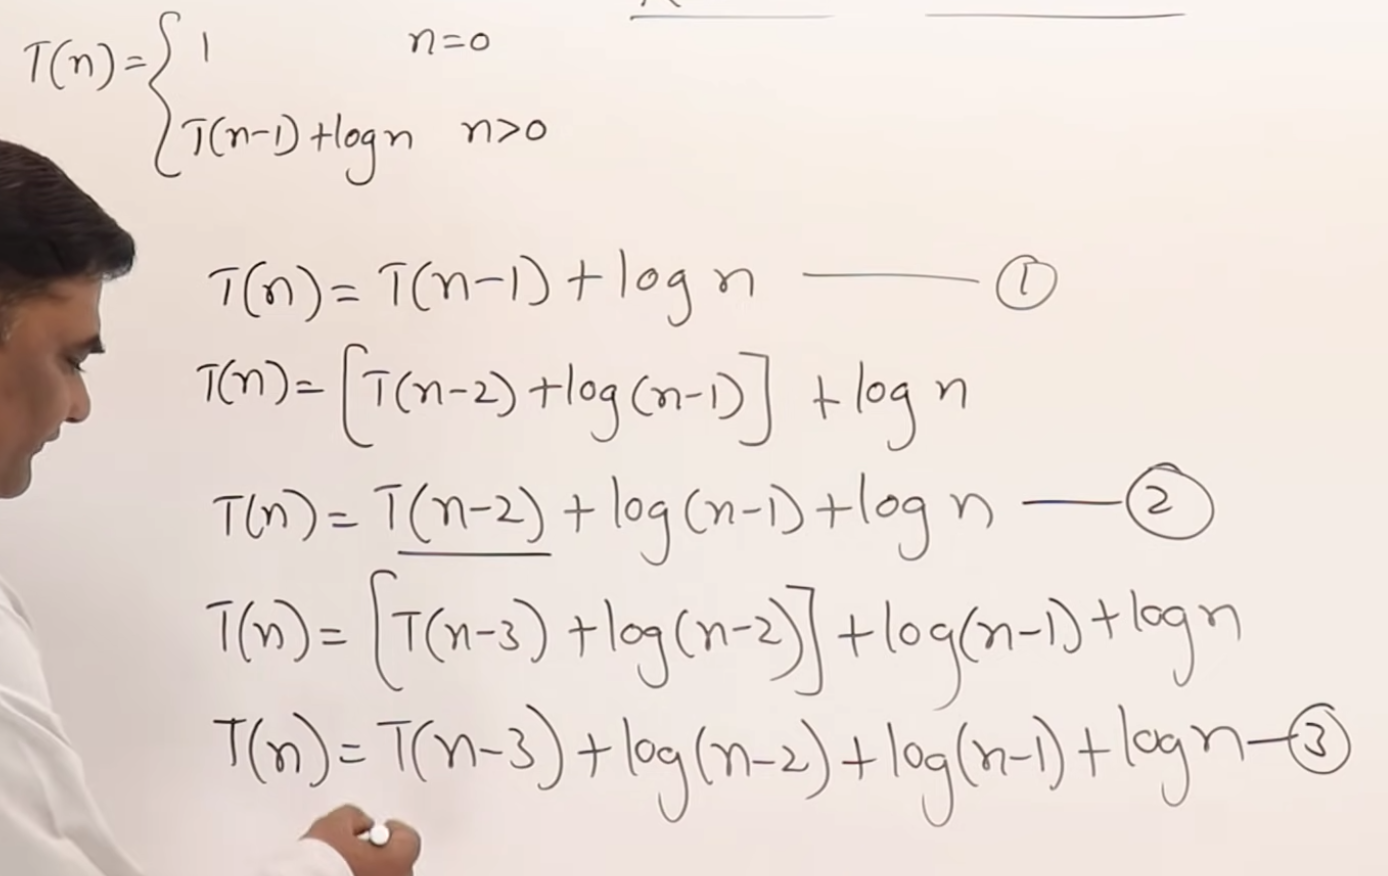 T(n)={ 1 n=0
T(n-1)+logn n>0
T(n)= T(n-1)+log n —— ①
T(n)= [T(n-2)+log(n-1)] +log n
T(n)= T(n-2)+log(n-1)+log n —— ②
T(n)= [T(n-3)+log(n-2)]+log(n-1)+logn
T(n)= T(n-3)+log(n-2)+log(n-1)+logn—③